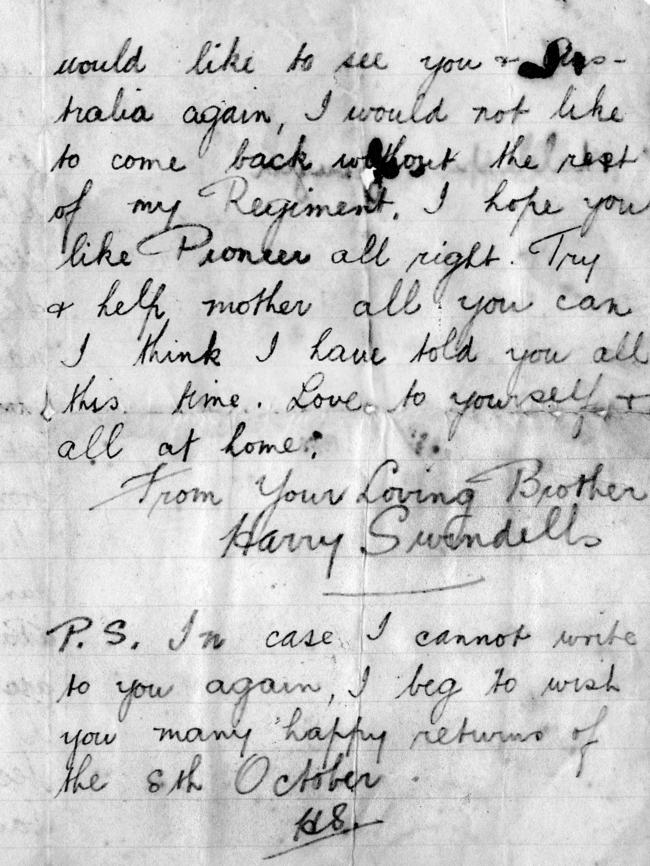 would like to see you & Aus-
tralia again, I would not like
to come back without the rest
of my Regiment. I hope you
like Pioneer all right. Try
& help mother all you can
I think I have told you all
this time. Love to yourself &
all at home.
From Your Loving Brother
Harry Swindells
P.S. In case I cannot write
to you again, I beg to wish
you many happy returns of
the 8th October.
HS.